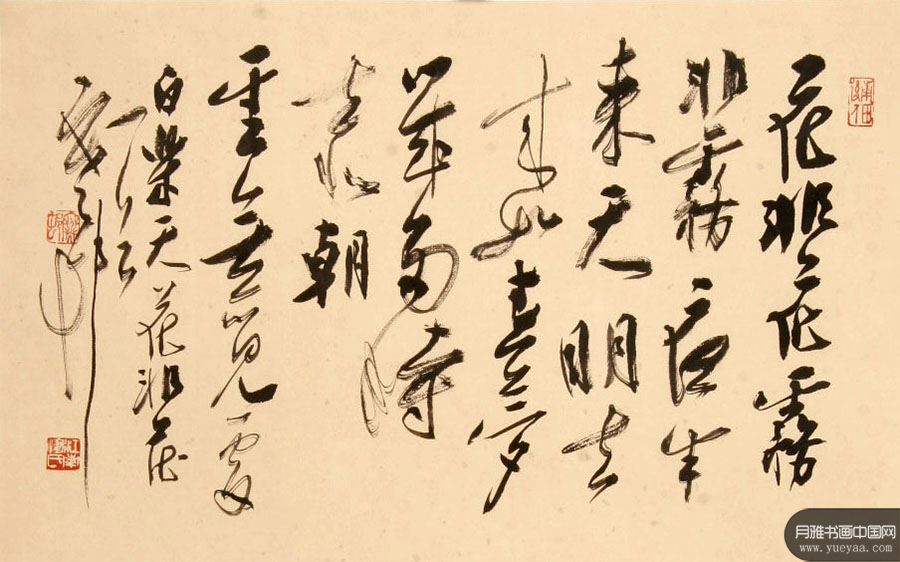 花非花霧
非霧夜半
来天明去
来如春夢
幾多時
去似朝
雲無覓處
白樂天花非花
月雅书画中国网
www.yueyaa.com